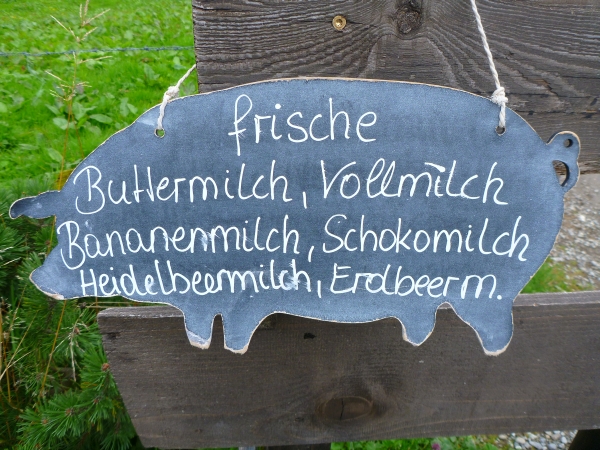 frische
Buttermilch, Vollmilch
Bananenmilch, Schokomilch
Heidelbeermilch, Erdbeerm.